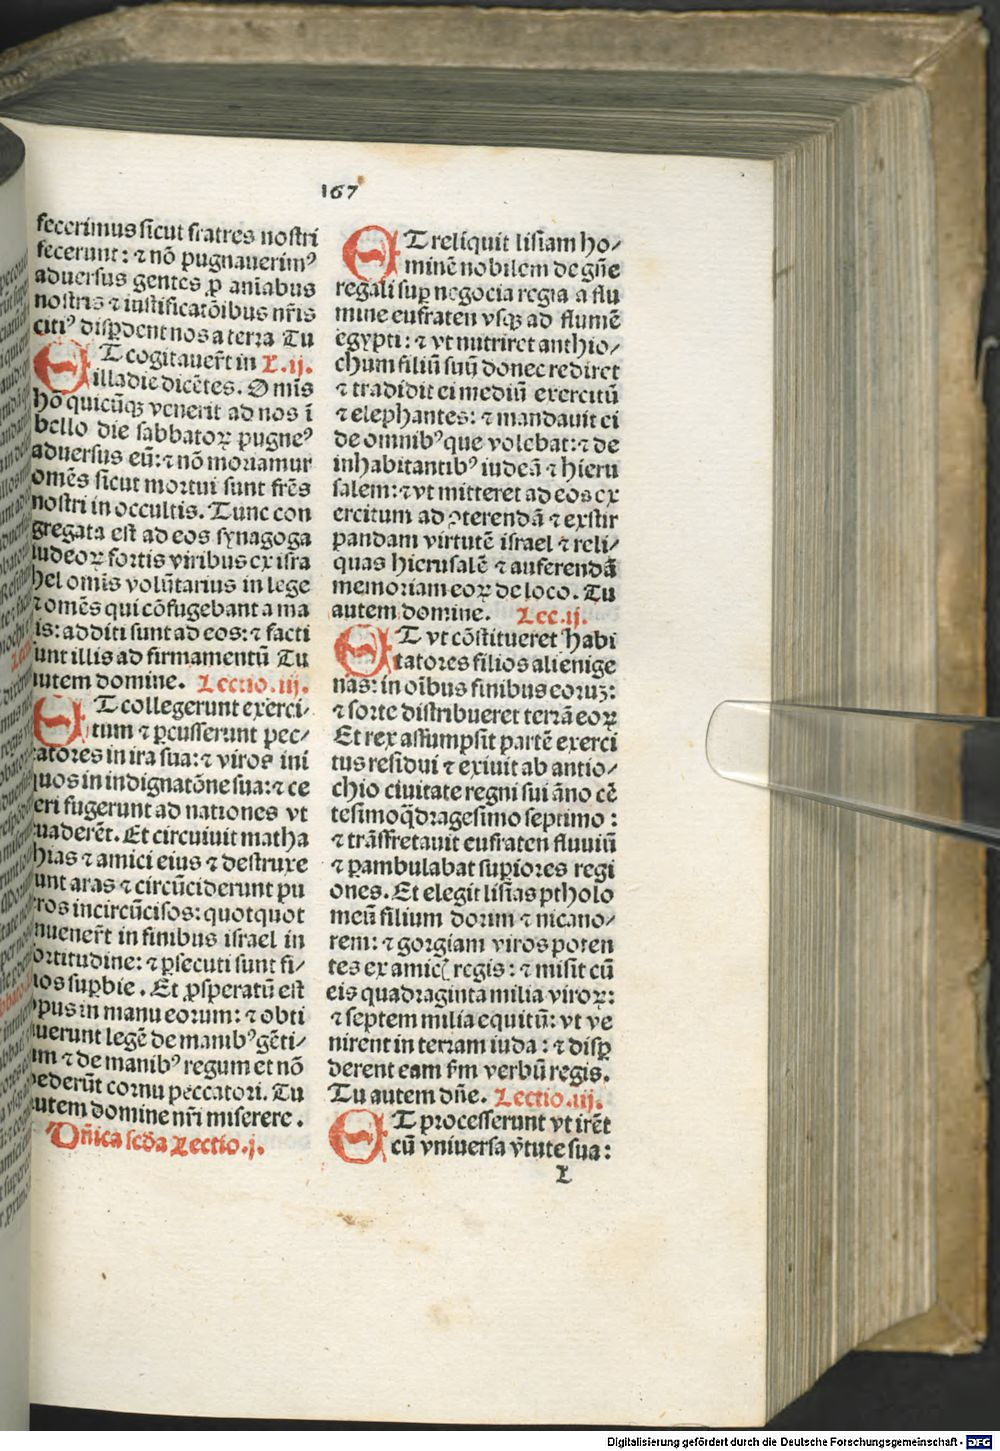 167
fecerimus sicut fratres nostri
fecerunt: ⁊ nō pugnauerimꝰ
aduersus gentes ꝓ aniabus
nostris ⁊ iustificatōibus nr̄is
citiꝰ disꝑdent nos a terra Tu
ET cogitauer̄t in L.ij.
illa die dicētes. Omīs
hō quicūqꝫ venerit ad nos ī
bello die sabbatoꝝ pugneꝰ
aduersus eū: ⁊ nō moriamur
omēs sicut mortui sunt fr̄es
nostri in occultis. Tunc con
gregata est ad eos synagoga
iudeoꝝ fortis viribus ex isra
hel omīs volūtarius in lege
⁊ omēs qui cōfugebant a ma
is: additi sunt ad eos: ⁊ facti
unt illis ad firmamentū Tu
utem domine. Lectio.iij.
ET collegerunt exerci⸗
tum ⁊ ꝑcusserunt pec⸗
catores in ira sua: ⁊ viros ini
quos in indignatōne sua: ⁊ ce
eri fugerunt ad nationes vt
uaderēt. Et circuiuit matha
hias ⁊ amici eius ⁊ destruxe
unt aras ⁊ circūciderunt pu
ros incircūcisos: quotquot
nuener̄t in finibus israel in
ortitudine: ⁊ ꝑsecuti sunt fi⸗
ios suꝑbie. Et ꝓsperatū est
opus in manu eorum: ⁊ obti
nuerunt legē de manibꝰ gēti⸗
um ⁊ de manibꝰ regum et nō
dederūt cornu peccatori. Tu
autem domine nr̄i miserere.
Dn̄ica scd̄a Lectio.j.
ET reliquit lisiam ho⸗
minē nobilem de gn̄e
regali suꝑ negocia regia a flu
mine eufraten vsqꝫ ad flumē
egypti: ⁊ vt nutriret anthio⸗
chum filiū suū donec rediret
⁊ tradidit ei mediū exercitū
⁊ elephantes: ⁊ mandauit ei
de omnibꝰ que volebat: ⁊ de
inhabitantibꝰ iudeā ⁊ hieru
salem: ⁊ vt mitteret ad eos ex
ercitum ad ꝯterendā ⁊ exstir
pandam virtutē israel ⁊ reli⸗
quas hierusalē ⁊ auferendā
memoriam eoꝝ de loco. Tu
autem domine. Lec.ij.
ET vt cōstitueret habi
tatores filios alienige
nas: in oībus finibus eoruꝫ:
⁊ sorte distribueret terrā eoꝝ
Et rex assumpsit partē exerci
tus residui ⁊ exiuit ab antio⸗
chio ciuitate regni sui āno cē
tesimo qdragesimo septimo:
⁊ trāsfretauit eufraten fluuiū
⁊ ꝑambulabat suꝑiores regi
ones. Et elegit lisias ptholo
meū filium dorim ⁊ nicano⸗
rem: ⁊ gorgiam viros poten
tes ex amicꝭ regis: ⁊ misit cū
eis quadraginta milia viroꝝ:
⁊ septem milia equitū: vt ve
nirent in terram iuda: ⁊ disꝑ
derent eam ẜm verbū regis.
Tu autem dn̄e. Lectio.iij.
ET processerunt vt irēt
cū vniuersa v̄tute sua:
X
Digitalisierung gefördert durch die Deutsche Forschungsgemeinschaft - DFG